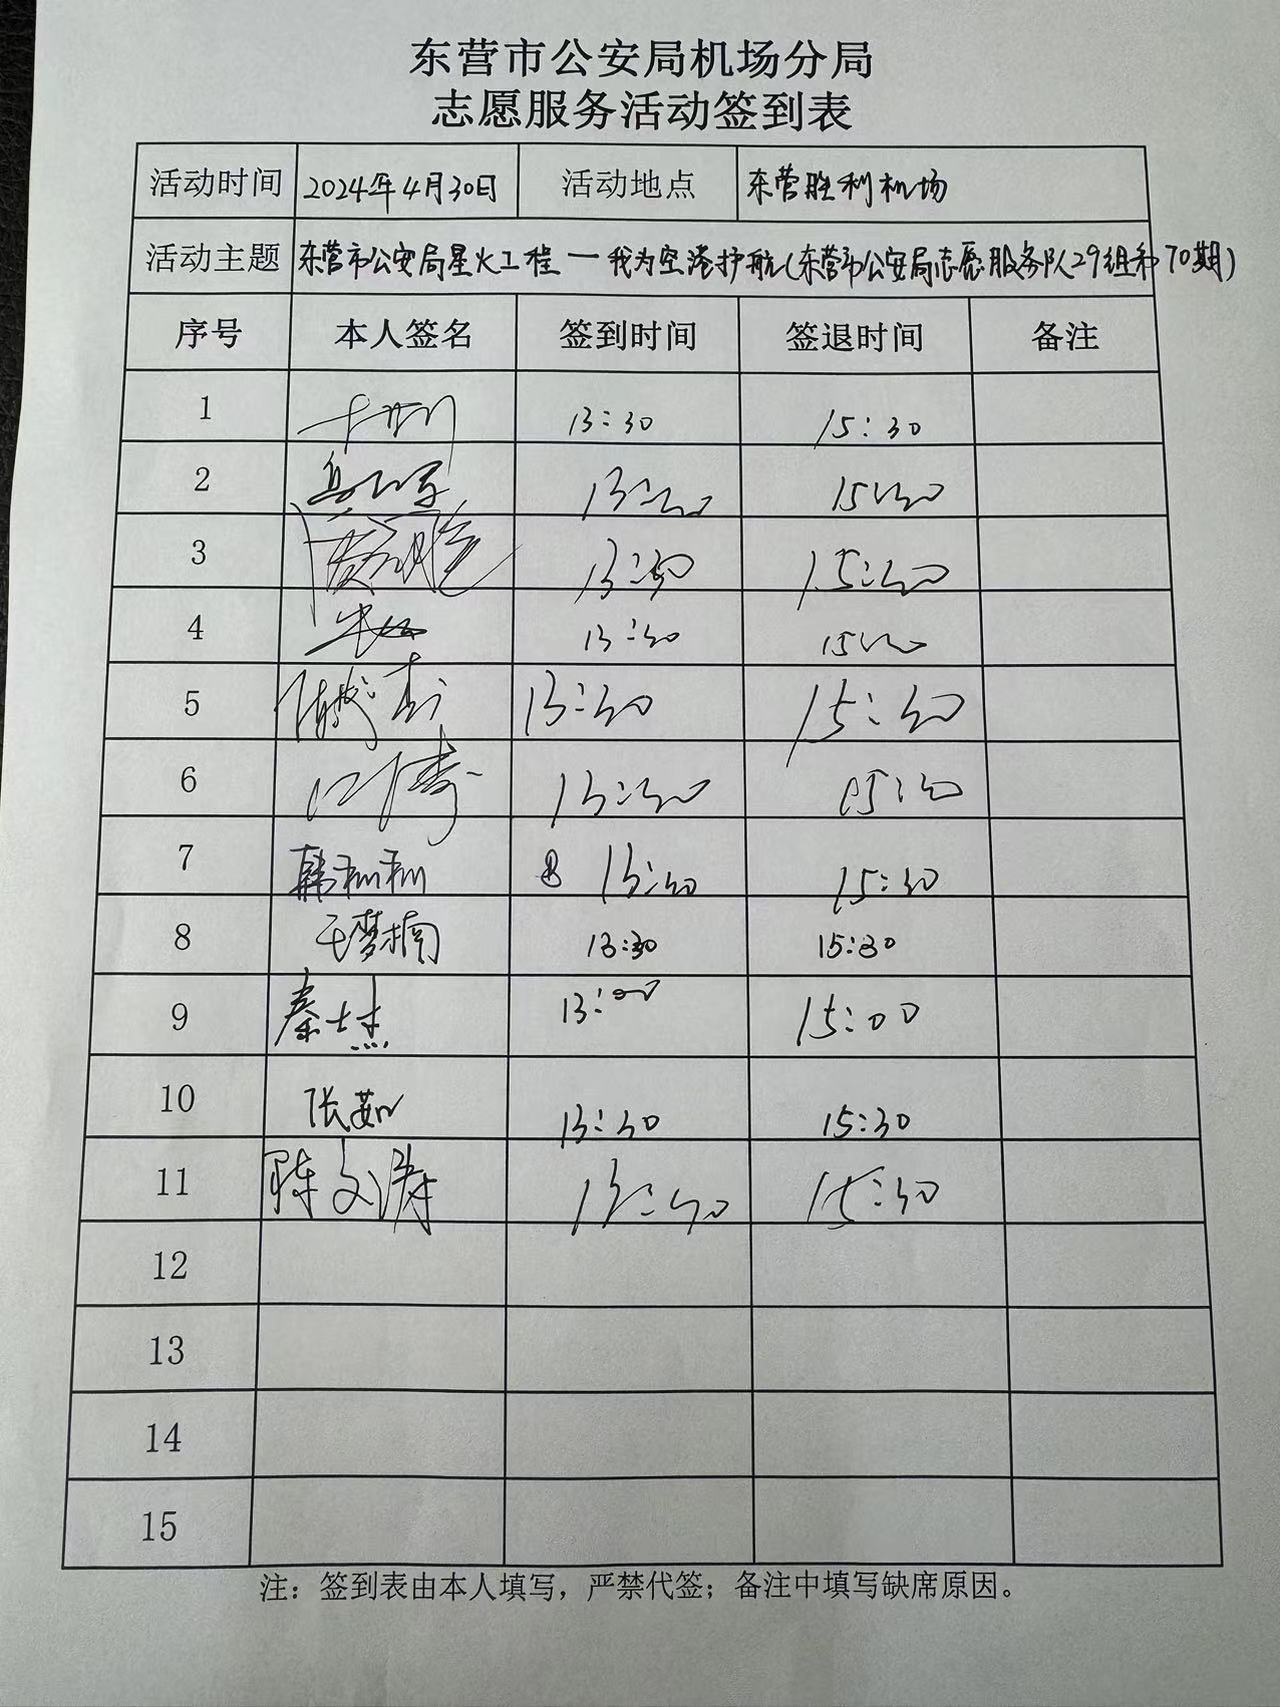 东营市公安局机场分局
志愿服务活动签到表
活动时间 2024年4月30日 活动地点 东营胜利机场
活动主题 东营市公安局星火工程—我为空港护航(东营市公安局志愿服务队29组和70期)
序号 本人签名 签到时间 签退时间 备注
1 13:30 15:30
2 13:30 15:30
3 13:30 15:30
4 13:30 15:30
5 13:30 15:30
6 13:30 15:30
7 韩珊珊 13:30 15:30
8 王梦楠 13:30 15:30
9 秦士杰 13:00 15:00
10 张茹 13:30 15:30
11 陈文涛 13:30 15:30
12
13
14
15
注：签到表由本人填写，严禁代签；备注中填写缺席原因。